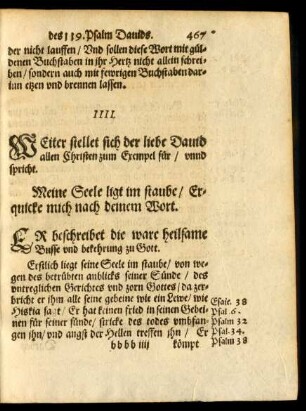 des 119. Psalm Dauids. 467
der nicht lauffen / Vnd sollen diese Wort mit gül-
denen Buchstaben in ihr Hertz nicht allein schrei-
ben / sondern auch mit fewrigen Buchstaben dar-
inn etzen vnd brennen lassen.
IIII.
WEiter stellet sich der liebe Dauid
allen Christen zum Exempel für / vnnd
spricht.
Meine Seele ligt im staube / Er-
quicke mich nach deinem Wort.
ER beschreibet die ware heilsame
Busse vnd bekehrung zu Gott.
Erstlich liegt seine Seele im staube / von we-
gen des betrübten anblicks seiner Sünde / des
vntreglichen Gerichtes vnd zorn Gottes / da zer-
bricht er ihm alle seine gebeine wie ein Lewe / wie
Hiskia sagt / Er hat keinen fried in seinen Gebei-
nen für seiner sünde / stricke des todes vmbfan-
gen ihn / vnd angst der Hellen treffen ihn / Er
Esaie. 38
Psal. 6.
Psalm 32
Psal. 34.
Psalm 38
bbbb iiij kömpt